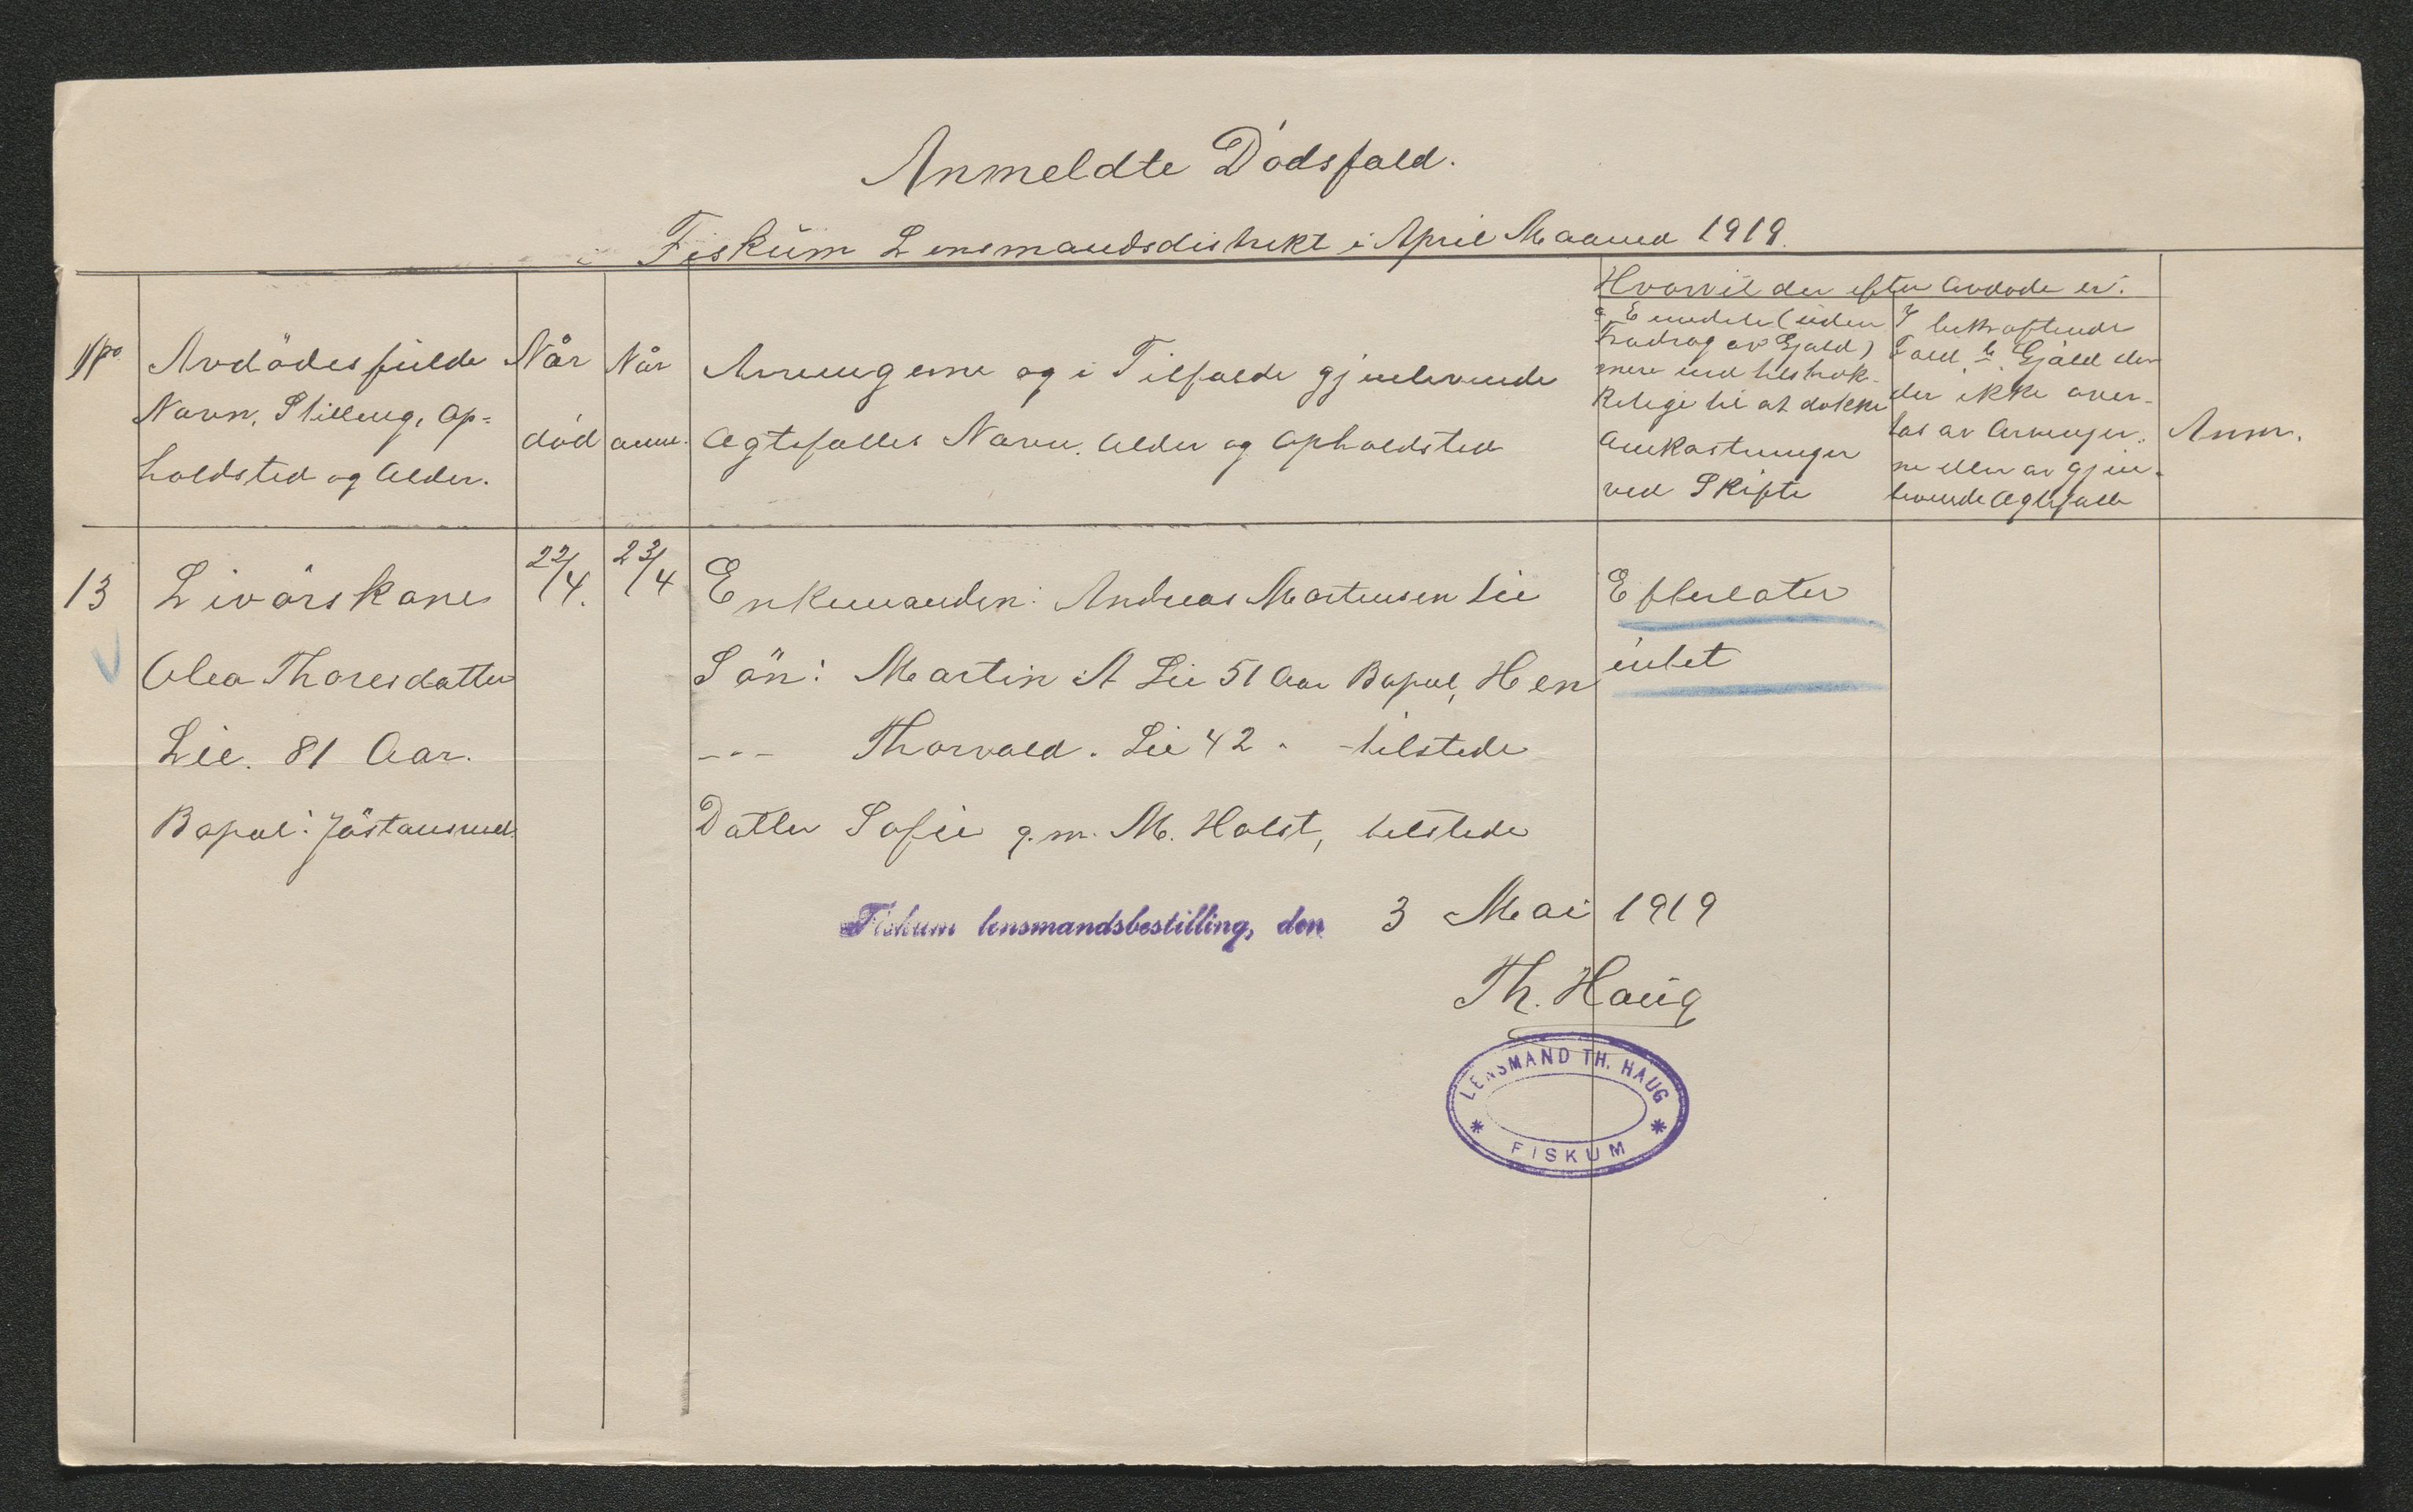 Anmeldte Dödsfald.
i Fiskum Lensmandsdistrikt i April Maaned 1919.
No
Avdödes fulde
Navn, Stilling, Op=
holdsted og Alder.
Når
död
Når
anm.
Arvingerne og i Tilfælde gjenlevende
Ægtefælles Navn, Alder og Opholdsted
Hvorvidt der efter Avdöde er:
a, Eiendele (uden
Fradrag av Gjæld)
mere end tilstræk-
kelige til at dække
Omkostninger
ved Skifte
I bekræftende
Fald b, Gjæld der
der ikke over-
tas av Arvinger-
ne eller av gjen-
levende Ægtefælle
Anm.
13
Livörskone
Olea Thoresdatter
Lie. 81 Aar.
Bopæl: Jöstansrud
22/4.
23/4
Enkemanden: Andreas Martensen Lie
Sön: Martin A Lie 51 Aar Bopæl, Hen
--- Thorvald. Lie 42 " - tilstede
Datter Sofie g.m. M. Holst, tilstede
Efterlater
intet
Fiskum lensmandsbestilling, den 3 Mai 1919
Th. Haug
LENSMAND TH. HAUG
* FISKUM *